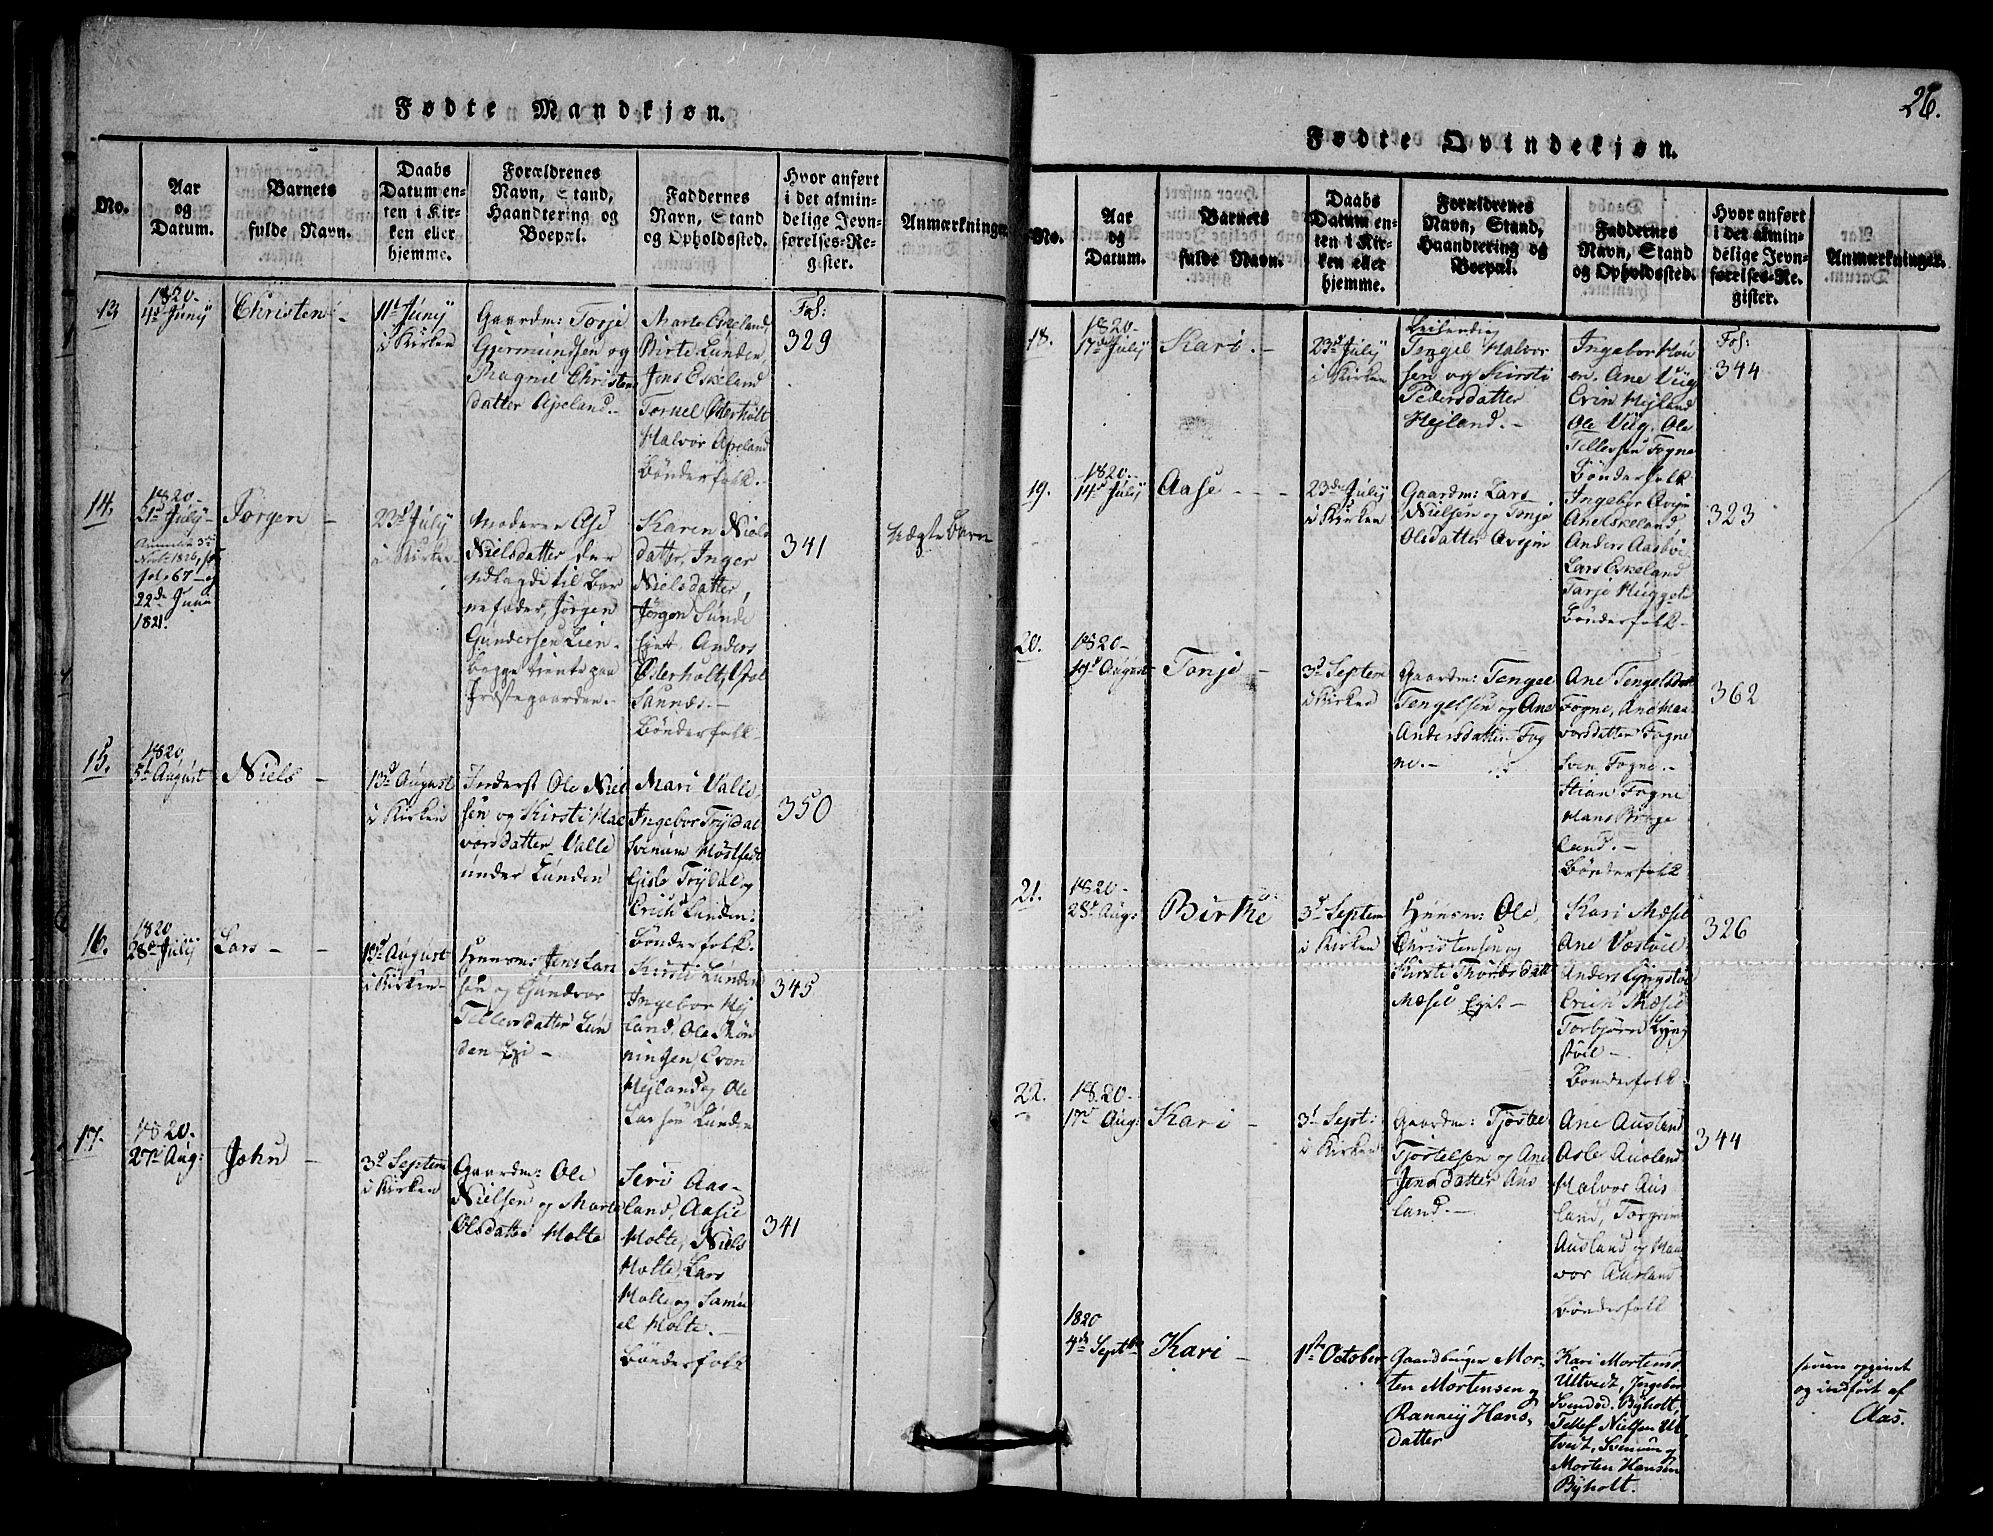 Fødte Mandkjøn.
No.
Aar
og
Datum.
Barnets
fulde Navn.
Daabs
Datum en-
ten i Kir-
ken eller
hjemme.
Forældrenes
Navn, Stand,
Haandtering og
Boepæl.
Faddernes
Navn, Stand
og Opholdssted.
Hvor anført
i det almin-
delige Jevn-
førelses-Re-
gister.
Anmærkninger
13.
1820-
4de Juny
Christen -
11te Juny
i Kirken
Gaardm: Torje
Gjermundsen og
Ragnil Christen
datter Apeland.-
Marte Eskeland,
Birte Lunden
Jens Eskeland
Tornel Østerholt
Halvor Apeland
Bønderfolk.
Fol:
329
14.
1820-
21de July-
fol: 67-
22de Juni
1821.
Jørgen -
23de July
i Kirken
Moderen Ase
Nielsdatter der
udlagde til Bar
nefader, Jørgen
Gundersen Lien-
begge tiente paa
Præstegaarden.-
Karen Niels
datter, Inger
Nielsdatter,
Jørgen Sunde
Ejet, Anders
Østerholt,
Sannæs.-
Bønderfolk.
341
Uægte Barn
15.
1820
5te August
Niels -
13de August
i Kirken
Inderst Ole Niel
sen og Kirsti Hal
vorsdatter Valle
under Lunden
Mari Valle,
Ingebor Trydal
Svenum Mostfedt
Gisle Trydal og
Erich Lunden:
Bønderfolk.
350
16.
1820
28de July
Lars - -
13de August
i Kirken -
Huusm: Jens Lar
sen og Gundvor
Tellevsdatter Lun
den Eje -
Kirsti Lunden
Ingebor Hej
land, Ole Røn
ningen, Even
Hejland og Ole
Larsen Lunden
345
17.
1820.
27de Aug:
John -
3de Septem
i Kirken
Gaardm: Ole
Nielsen og Marte
Olsdatter Holte
Siri Aas-
land, Aasie
Holte, Niels
Holte, Lars
Holte og Samu
el Holte.-
Bønderfolk
341
26.
Fødte Qvindekjøn.
No.
Aar
og
Datum.
Barnets
fulde Navn.
Daabs
Datum en-
ten i Kir-
ken eller
hjemme.
Forældrenes
Navn, Stand,
Haandtering og
Boepæl.
Faddernes
Navn, Stand
og Opholdssted.
Hvor anført
i det almin-
delige Jevn-
førelses-Re-
gister.
Anmærkninger.
18.
1820-
17de July
Kari. -
23de July
i Kirken
Leilending
Tengel Halvor
sen og Kirsti
Pedersdatter
Hejland.-
Ingebor Mou
en, Ane Vüg
Even Hejland
Ole Vüg, Ole
Tellefsen Fogne
Bønderfolk
Fol:
344
19.
1820.-
14de July
Aase - - -
23de July
i Kirken
Gaardm: Lars
Nielsen og Tonje
Olsdatter Avejm
Ingebor Avejm
Ane Eskeland
Anders Aasbøe
Lars Eskeland
Tarje Hugget
Bønderfolk.
323
20.
1820-
19de August
Tonje -
3de Septem
i Kirken
Gaardm: Tengel
Tengelsen og Ane
Andersdatter Fog
ne.-
Ane Tengelsdatt
Fogne, Ane Hal
vorsdatter Fogne
Sven Fogne.-
Stian Fogne
Hans Brege
land.-
Bønderfolk
362
21.
1820-
28de Aug:
Birthe
3de Septem
i Kirken
Huusm: Ole
Christensen og
Kirsti Thordsdatt
Mæsel Ejet-
Kari Mæsel
Ane Væstøel
Anders Lyngstøel
Erich Mæsel
Torbjørn Lyng
støel-
Bønderfolk.
326
22.
1820-
17de Aug:
Kari -
3de Sept:
i Kirken
Gaardm: Tjøstel
Tjøstelsen og Ane
Jensdatter Aus
land.-
Ane Ausland
Asle Ausland
Halvor Aus
land, Torgrim
Ausland og Hal
vor Ausland
Bønderfolk
344
1820
4de Septbr
Kari -
1ste October
Gaardbruger Mor-
ten Mortensen og
Ranney Hans-
datter
Kari Mortensd.
Ultvedt, Ingebor
Svendsd. Byholt,
Tellef Nielsen Ul-
tvedt, Svenum og
Morten Hansen
Byholt.
og indført af
Aas.